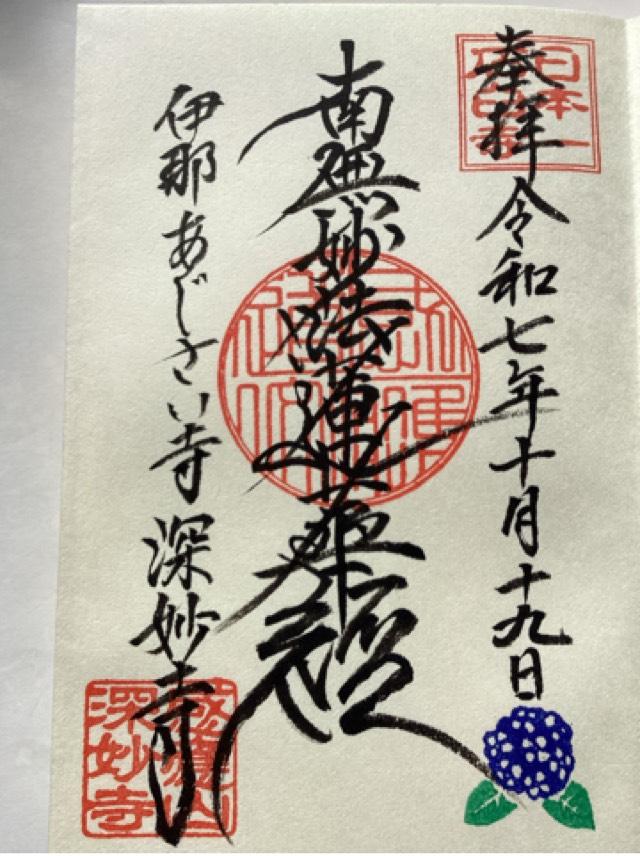 奉拝 令和七年十月十九日
南無妙法蓮華経
伊那あじさい寺 深妙寺
深妙寺